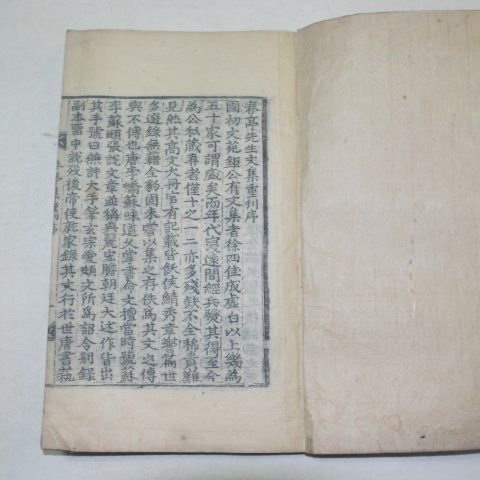 春亭先生文集重刊序
國初文苑鉅公有文集者徐四佳成虛白以上幾為
五十家可謂盛矣而年代寖遠間經兵燹其得至今
為公私藏弆者僅十之一二亦多殘缺不全稀貴難
見然其高文大冊官有記載皆飫侯鯖秀章警篇世
多選錄無藉全豹固未嘗以集之存佚為其文之傳
與不傳也唐李嶠蘇味道久掌書命文擅當時號蘇
李蘇頲張說文章並稱典麗宏贍朝廷大述作皆出
其手號曰燕許大手筆玄宗愛頲文所為詔令別錄
副本留中說歿後帝使就家錄其文行於世唐書藝